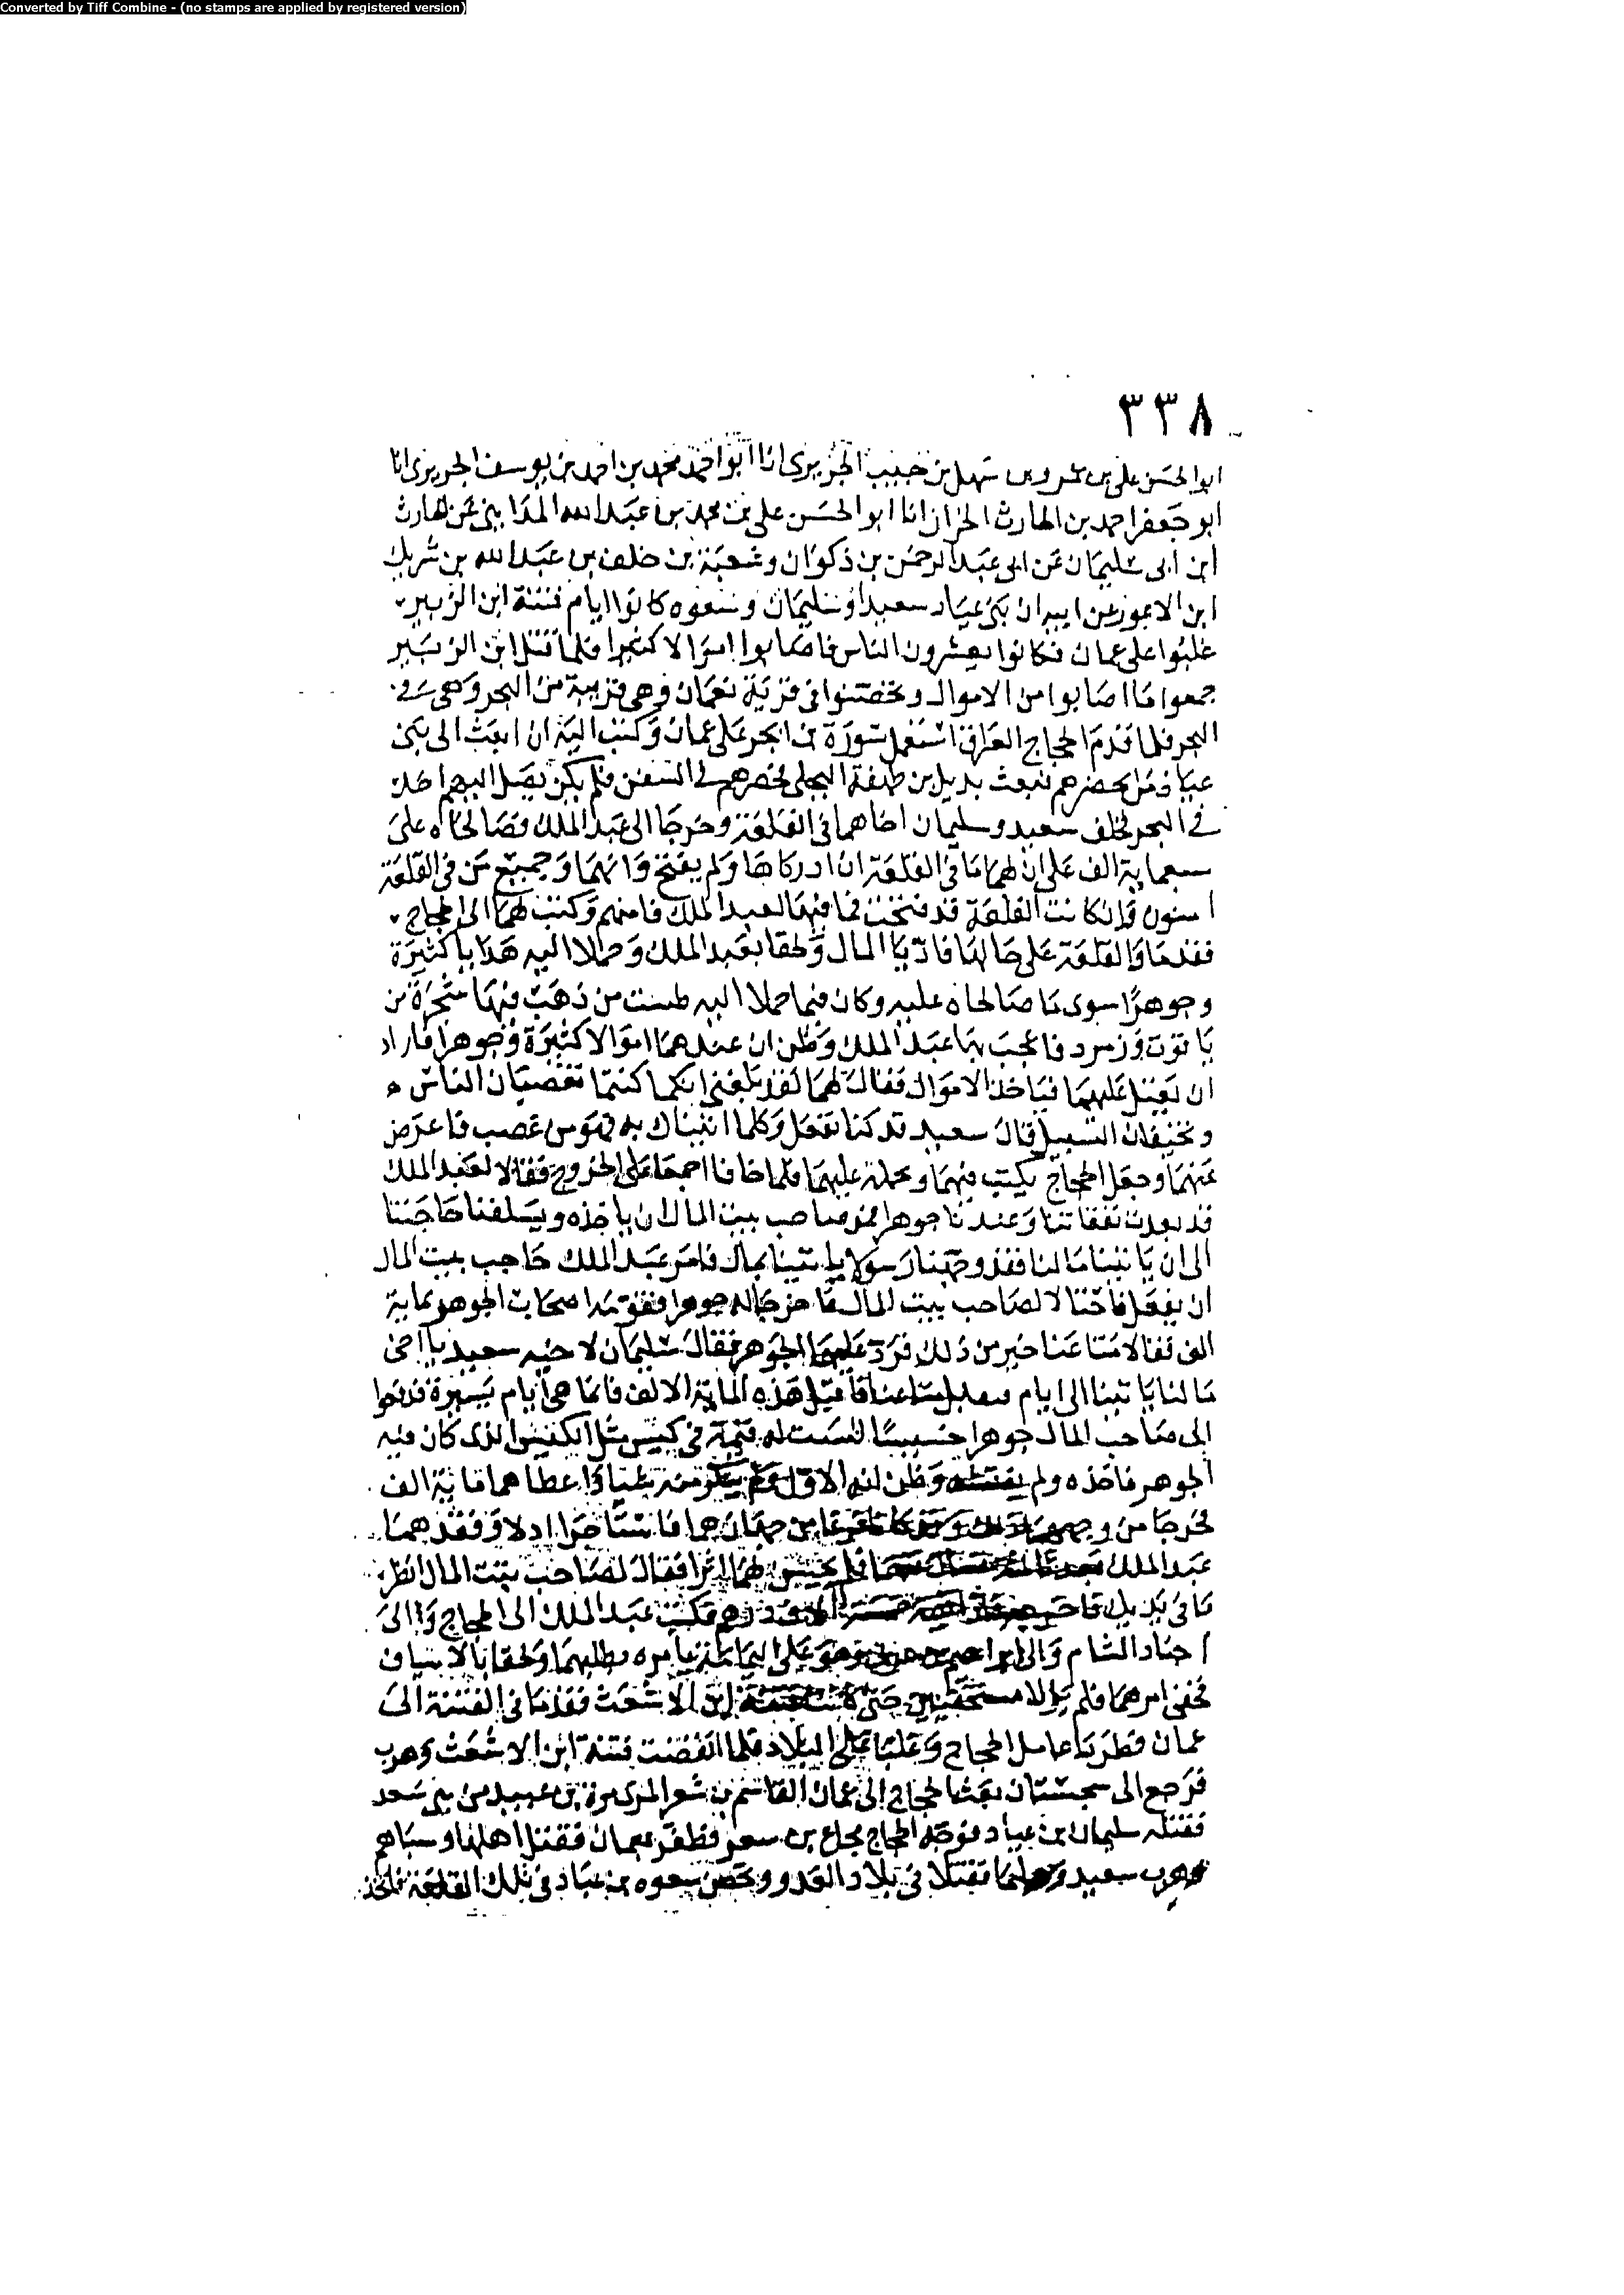 Converted by Tiff Combine - (no stamps are applied by registered version)
٣٣٨
ابو الحسن على بن عمرو بن سهل بن حبيب الجريرى انا ابو احمد محمد بن احمد بن يوسف الجريرى انا
ابو جعفر احمد بن الحارث الخزاز انا ابو الحسن على بن محمد بن عبد الله المداينى عن هارث
ابن ابى سليمان عن ابى عبد الرحمن بن ذكوان وشعبة بن خلف بن عبد الله بن شريك
ابن الاعور عن ابيه ان بنى عياد سعيدا وسليمان وسعوه كانوا ايام فتنة ابن الزبير
غلبوا على عمان فكانوا يعشرون الناس فاصابوا اموالا كثيرا فلما قتل ابن الزبير
جمعوا ما اصابوا من الاموال وتحصنوا فى قرية نعمان وهى قريبة من البحر وهى
البحر فلما قدم الحجاج العراق استعمل سورة بن ابجر على عمان وكتب اليه ان ابعث الى بنى
عياد من يحضرهم فبعث بديل بن طهفة البجلى فحصرهم فى السفن فلم يكن يصل اليهم احد
فى البحر فخلف سعيد وسليمان اخاهما فى القلعة وخرجا الى عبد الملك فصالحاه على
سبعماية الف على ان لهما ما فى القلعة ان ادركاها ولم يفتح وانهما وجميع من فى القلعة
امنون وان كانت القلعة قد فتحت فما فيها لعبد الملك فامنهم وكتب لهما الى الحجاج
فقدما والقلعة على حالها فاديا المال ولحقا بعبد الملك وحملا اليه هدايا كثيرة
وجوهرا سوى ما صالحاه عليه وكان فيما حملا اليه طست من ذهب فيها شجرة من
ياقوت وزمرد فاعجب بها عبد الملك وظن ان عندهما اموالا كثيرة وجوهرا فاراد
ان يعتل عليهما فياخذ الاموال فقال لهما لقد بلغنى انكما كنتما تغصبان الناس
وتخيفان السبيل قال سعيد قد كنا نفعل وكلما اتيناك به فهو من غصب فاعرض
عنهما وجعل الحجاج يكتب فيهما ويحمله عليهما فلما خافا اجمعا على الخروج فقالا لعبد الملك
قد نفدت نفقاتنا وعندنا جوهر فمر صاحب بيت المال ان ياخذه ويسلفنا حاجتنا
الى ان ياتينا مالنا فقد وجهنا رسولا ياتينا بمال فامر عبد الملك صاحب بيت المال
ان يفعل فاتيا لصاحب بيت المال فاخرجا له جوهرا فقومه اصحاب الجوهر بماية
الف فقالا متاعنا خير من ذلك فرد عليهما الجوهر فقال سليمان لاخيه سعيد يا اخى
مالنا ياتينا الى ايام متاعنا فاقبل هذه الماية الالف فانما هى ايام يسيرة فدفعوا
الى صاحب المال جوهرا خسيسا ليست له قيمة فى كيس مثل الكيس الذى كان فيه
الجوهر فاخذه ولم يفتشه وظن انه الاول ولم ينكر منه شيا واعطاهما ماية الف
فخرجا من فاستاجرا ادلا وفقدهما
عبد الملك فلم يحسس لهما اثرا فقال لصاحب بيت المال انظر
ما فى يديك درهم فكتب عبد الملك الى الحجاج والى
اجناد الشام والى ابراهيم بن وهو على اليمامة يامره بطلبهما ولحقا بالاسياف
فخفى امرهما فلم يزالا مستخفيين حتى كانت فتنة ابن الاشعث فقدما فى الفتنة الى
عمان فطردا عامل الحجاج وغلبا على البلاد فلما انقضت فتنة ابن الاشعث وهرب
فرجع الى سجستان بعث الحجاج الى عمان القاسم بن شعر المزى بن عبيد من بنى سعد
فقتله سليمان بن عياد فوجه الحجاج مجاع بن سعر فظفر بعمان فقتل اهلها وسباهم
وهرب سعيد وسليمان فقتلا فى بلاد العدو وتحصن سعوه بن عياد فى تلك القلعة فاخذ